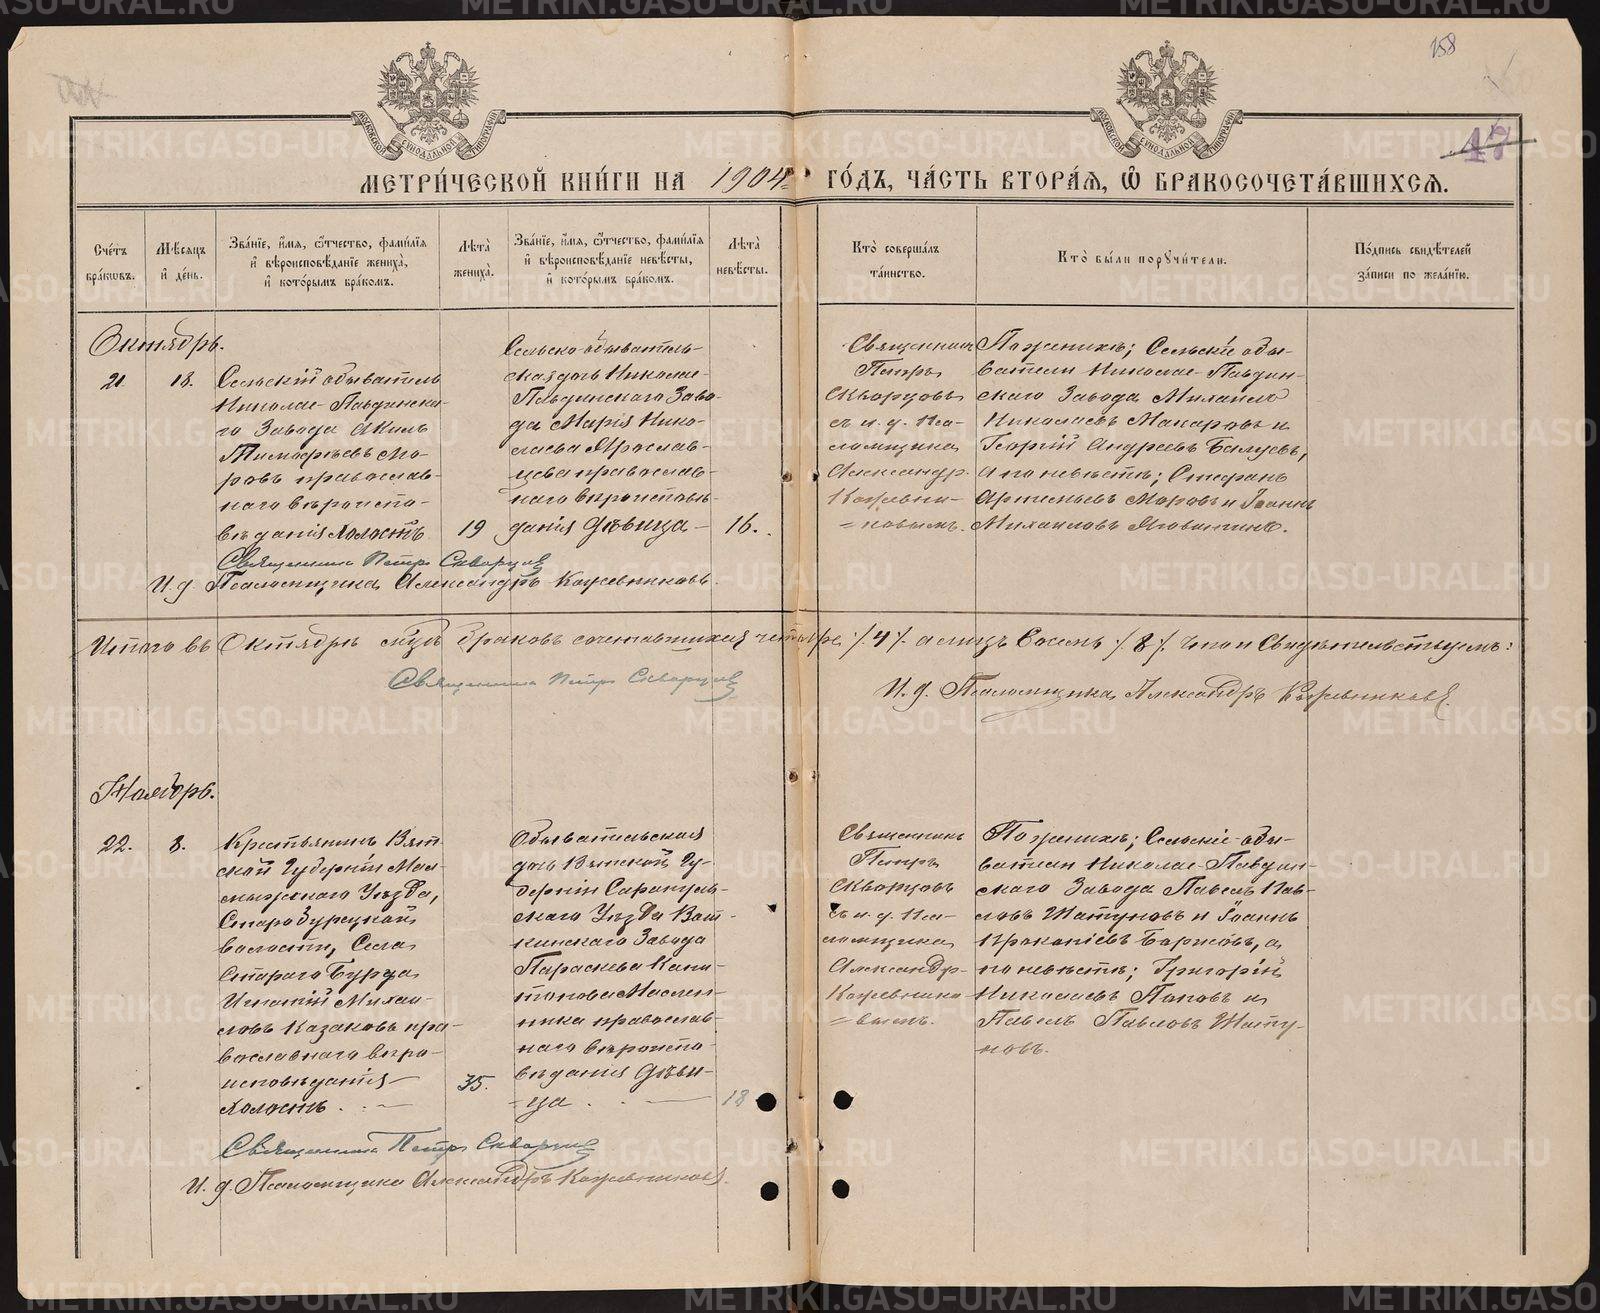 158
47
МЕТРИ́ЧЕСКОЙ КНИ́ГИ НА 1904 ГО́ДЪ, ЧА́СТЬ ВТОРА́Я, Ѽ БРАКОСОЧЕТА́ВШИХСЯ.
Сче́тъ бра́кѡвъ.
Мѣ́сяцъ и́ де́нь.
Зва́нїе, и́мя, ѻ́тчество, фами́лїя и́ вѣроисповѣ́данїе жениха̀, и́ кото́рымъ бра́комъ.
Лѣта̀ жениха̀.
Зва́нїе, и́мя, ѻ́тчество, фами́лїя и́ вѣроисповѣ́данїе невѣ́сты, и́ кото́рымъ бра́комъ.
Лѣта̀ невѣ́сты.
Кто̀ соверша́лъ та́инство.
Кто̀ бы́ли порꙋчи́тели.
По́дпись свидѣ́телей за́писи по жела́нїю.
Октябрь.
21. 18.
Сельскій обыватель
Николае-Павдинска-
го Завода Акилъ
Тимофѣевъ Мо-
ровъ православ-
наго вѣроиспо-
вѣданія холостъ
19
Сельско-обыватель-
ская дочь Николае-
Павдинскаго Заво-
да Марія Нико-
лаева Ярослав-
цева православ-
наго вѣроисповѣ-
данія дѣвица
16.
Священникъ
Петръ
Скворцовъ
съ и. д. Пса-
ломщика
Александр.
Кожевни-
ковымъ.
По женихѣ; Сельскіе обы-
ватели Николае-Павдин-
скаго Завода Михаилъ
Николаевъ Макаровъ и
Георгій Андреевъ
а по невѣстѣ; Стефанъ
Артемьевъ Моровъ и Іоаннъ
Михаиловъ
Священникъ Петръ Скворцовъ
И. д. Псаломщика Александръ Кожевниковъ.
Итого въ Октябрѣ м͠цѣ браковъ сочетавшихся четыре /.4/. а лицъ восемь /.8/. что и свидѣтельствуемъ:
Священникъ Петръ Скворцовъ
И. д. Псаломщика Александръ Кожевниковъ.
Ноябрь.
22. 8.
Крестьянинъ Вят-
ской Губерніи Мал-
мыжскаго Уѣзда,
Старобурецкой
волости, Села
Стараго Бурца
Игнатій Михаи-
ловъ Казаковъ пра-
вославнаго вѣро-
исповѣданія
холостъ.
35.
Обывательская
дочь Вятской Гу-
берніи Сарапуль-
скаго Уѣзда Вот-
кинскаго Завода
Параскева Капи-
тонова Маслен-
никова православ-
наго вѣроиспо-
вѣданія дѣви-
ца.
18
Священникъ
Петръ
Скворцовъ
съ и. д. Пса-
ломщика
Александр-
Кожевнико-
вымъ.
По женихѣ; Сельскіе обы-
ватели Николае-Павдин-
скаго Завода Павелъ Пав-
ловъ Шатуновъ и Іоаннъ
Прокопіевъ Борисовъ, а
по невѣстѣ; Григорій
Николаевъ Поповъ и
Павелъ Павловъ Шату-
новъ.
Священникъ Петръ Скворцовъ
И. д. Псаломщика Александръ Кожевниковъ.
METRIKI.GASO-URAL.RU